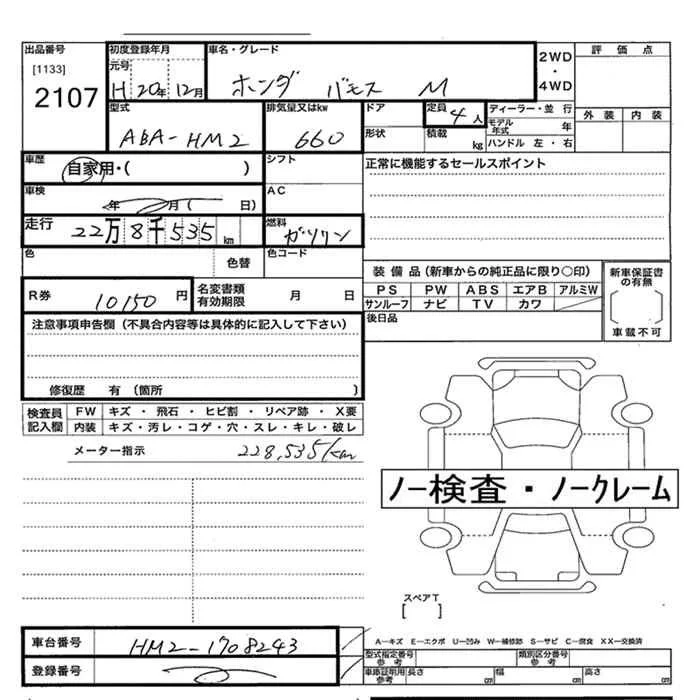 出品番号 初度登録年月 車名・グレード 2WD・4WD 評価点
[1133] 元号
2107 H 20年 12月 ホンダ バモス M
型式 排気量又はkw ドア 定員 ディーラー・並行 外装 内装
ABA-HM2 660 4人 モデル年式 年
形状 積載 kg ハンドル 左・右
車歴 自家用・( ) シフト 正常に機能するセールスポイント
車検 年 月( 日) AC
走行 22万8千535km 燃料 ガソリン
色 色替 色コード
装備品(新車からの純正品に限り〇印) 新車保証書の有無
PS PW ABS エアB アルミW
サンルーフ ナビ TV カワ 車載不可
R券 10150円 名変書類有効期限 月 日
後日品
注意事項申告欄(不具合内容等は具体的に記入して下さい)
修復歴 有(箇所 )
検査員記入欄 FW キズ・飛石・ヒビ割・リペア跡・X要
内装 キズ・汚レ・コゲ・穴・スレ・キレ・破レ
メーター指示 228,535km
ノー検査・ノークレーム
スペアT
[ ]
A―キズ E―エクボ U―凹み W―補修跡 S―サビ C―腐食 XX―交換済
車台番号 HM2-1708243
型式指定番号 参考 類別区分番号 参考
登録番号
車庫証明用 参考 長さ cm 幅 cm 高さ cm